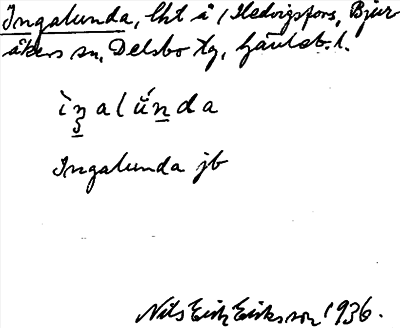 Ingalunda, lht å / Hedvigsfors, Bjur-
åkers sn, Delsbo tg, Gävleb. l.
ìŋalúnda
Ingalunda jb
Nils Erik Eriksson 1936.